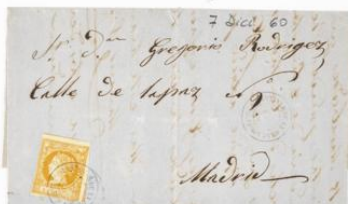 7 Dice 60
Sr. Dn Gregorio Rodrigez
Calle de la paz nº 9
Madrid